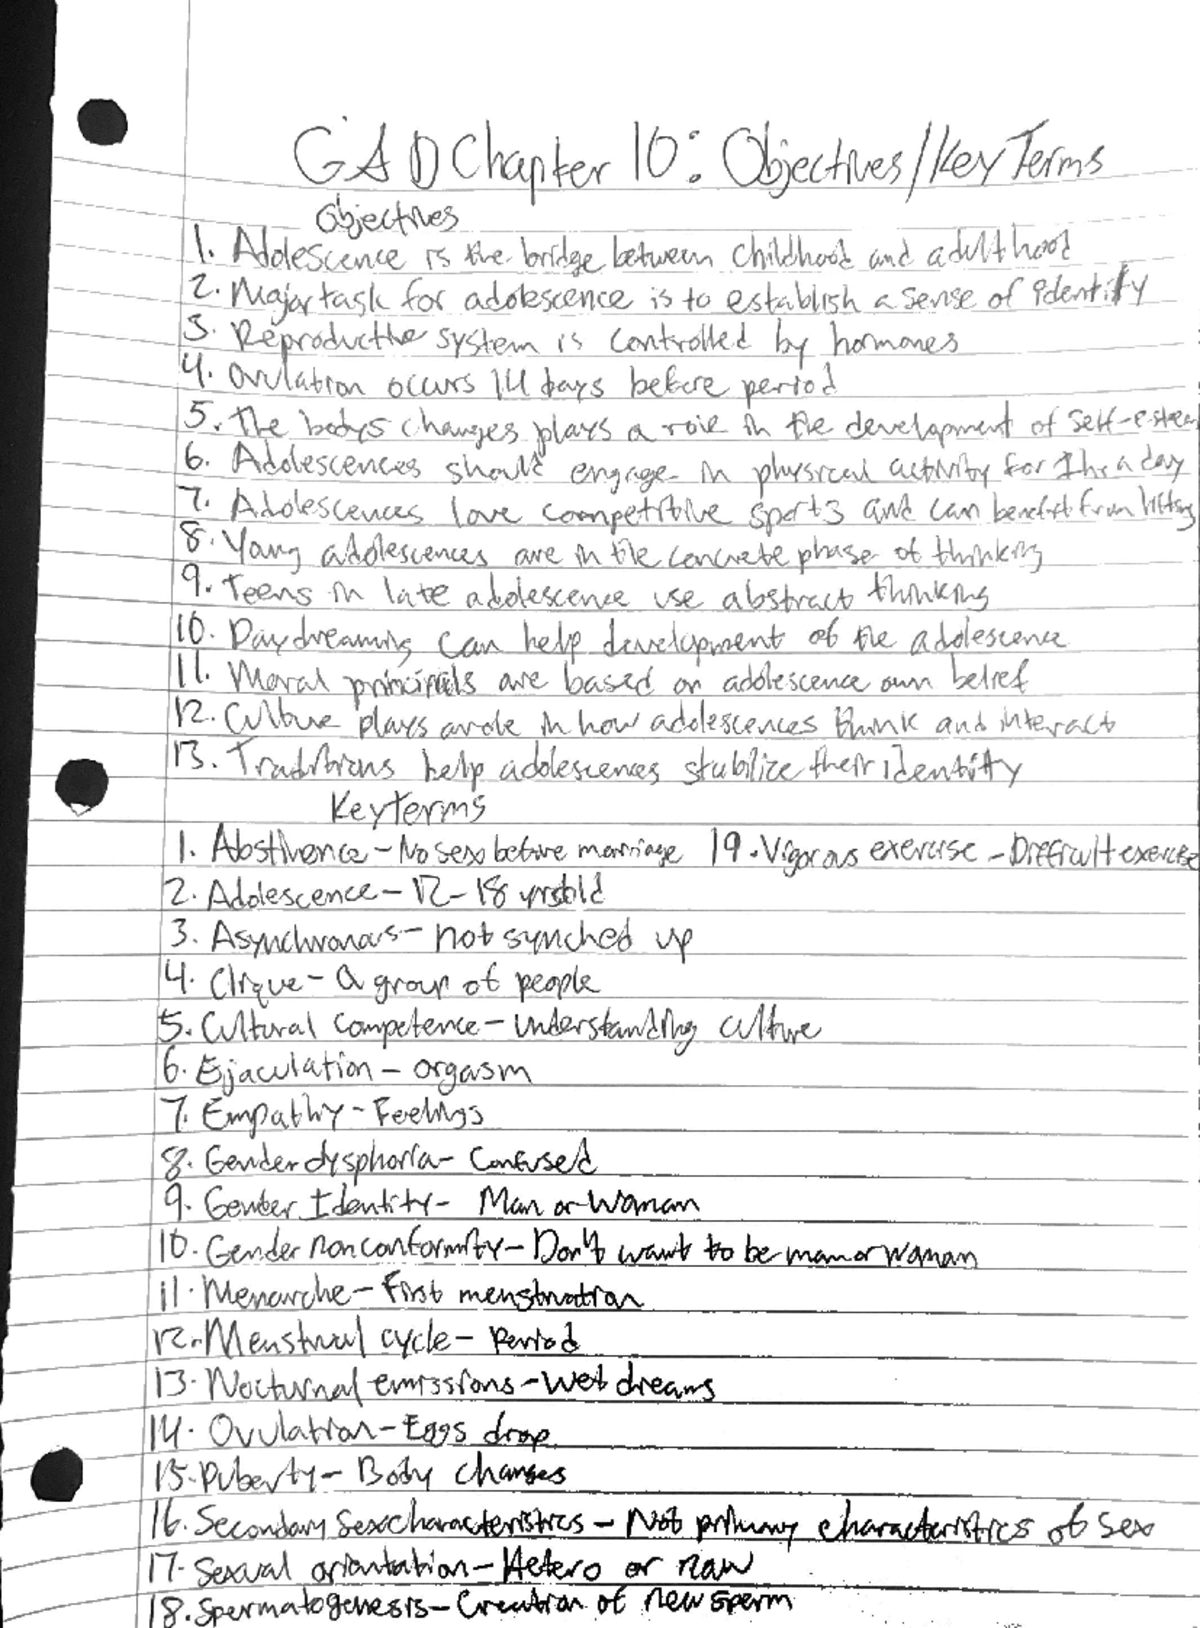 G&D Chapter 10: Objectives/Key Terms
Objectives
1. Adolescence is the bridge between childhood and adulthood
2. Major task for adolescence is to establish a sense of identity
3. Reproductive system is controlled by hormones
4. Ovulation occurs 14 days before period
5. The bodys changes plays a role in the development of self-esteem
6. Adolescences should engage in physical activity for 1hr a day
7. Adolescences love competitive sports and can benefit from lifting
8. Young adolescences are in the concrete phase of thinking
9. Teens in late adolescence use abstract thinking
10. Daydreaming can help development of the adolescence
11. Moral principals are based on adolescence own belief
12. Culture plays a role in how adolescences think and interact
13. Traditions help adolescences stabilize their identity
Key terms
1. Abstinence - No sex before marriage 19. Vigorous exercise - Difficult exercise
2. Adolescence - 12-18 yrs old
3. Asynchronous - not synched up
4. Clique - a group of people
5. Cultural competence - understanding culture
6. Ejaculation - orgasm
7. Empathy - Feelings
8. Gender dysphoria - Confused
9. Gender Identity - Man or Woman
10. Gender nonconformity - Don't want to be man or woman
11. Menarche - First menstruation
12. Menstrual cycle - Period
13. Nocturnal emissions - Wet dreams
14. Ovulation - Eggs drop
15. Puberty - Body changes
16. Secondary sex characteristics - Not primary characteristics of sex
17. Sexual orientation - Hetero or
18. Spermatogenesis - Creation of new sperm